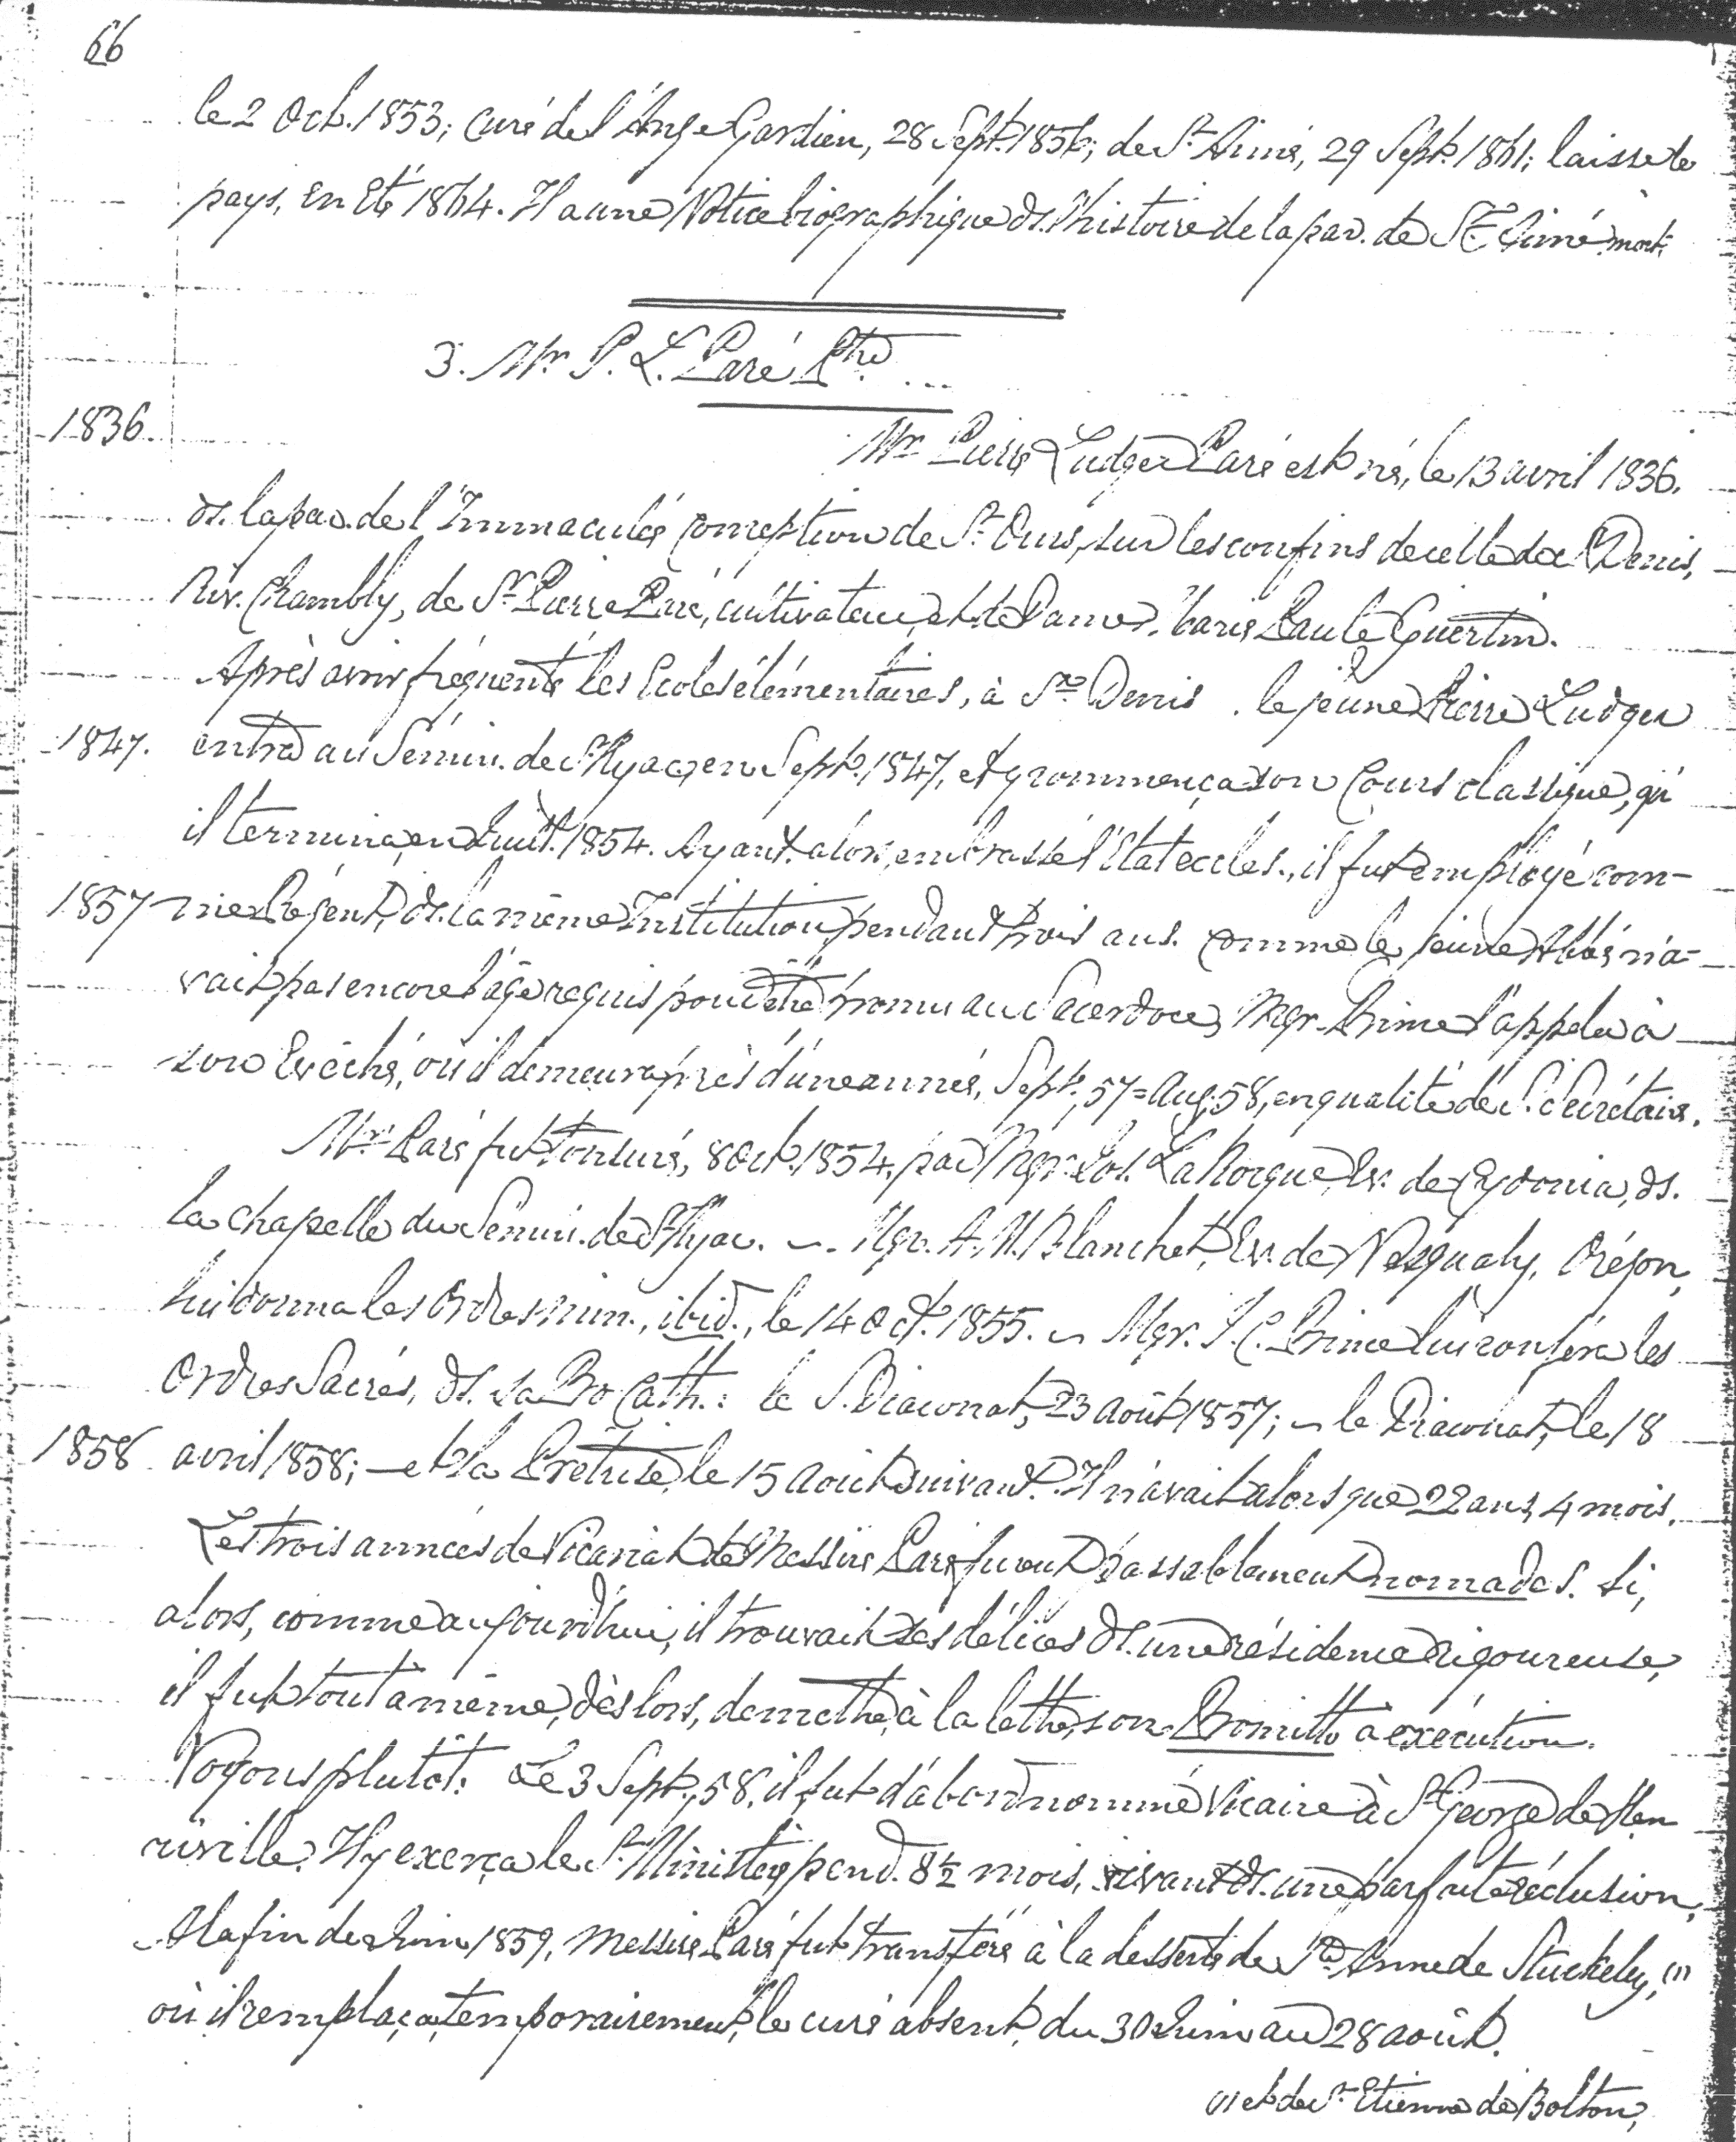 66
le 2 Oct. 1853; curé de l'Ange Gardien, 28 Sept. 1856; de St Aimé, 29 Sept. 1861; laisse le
pays, en Eté 1864. Il a une Notice biographique ds. l'histoire de la par. de St Aimé. mort.
3. Mr P. L. Paré Ptre ...
1836.
Mr Pierre Ludger Paré est né, le 13 avril 1836.
ds. la par. de l'Immaculée Conception de St Ours, sur les confins de celle de St Denis,
Riv. Chambly, de Sr Pierre Paré, cultivateur, et de Dame Marie Paule Guertin.
Après avoir fréquenté les Ecoles élémentaires, à St Denis. le jeune Pierre Ludger
1847. entra au Sémin. de St Hyac, en Sept. 1847, et y commença son Cours classique, qu'
il termina, en Juill. 1854. Ayant alors, embrassé l'état eccles., il fut employé com-
1857 me Régent, ds. la même Institution, pendant trois ans. Comme le jeune Abbé n'a-
vait pas encore l'âge requis pour être promu au Sacerdoce, Mgr. Prince l'appela à
son Evêché, où il demeura près d'une année, Sept. 57 = Aug. 58, en qualité de S. Secrétaire.
Mr Paré fut tonsuré, 8 Oct. 1854, par Mgr. Jos. LaRocque, Ev. de Cydonia, ds.
la chapelle du Sémin. de St Hyac. ~ Mgr. A. M. Blanchet, Ev. de Nesqualy, Orégon,
lui donna les Ordres min., ibid., le 14 Oct. 1855. ~ Mgr. J. C. Prince lui conféra les
Ordres Sacrés, ds. sa Pro Cath.: le S. Diaconat, 23 août 1857; ~ le Diaconat, le 18
1858 avril 1858; — et la Prêtrise, le 15 août suivant. Il n'avait alors que 22 ans, 4 mois.
Les trois années de Vicariat de Messire Paré furent passablement nomades. Si,
alors, comme aujourd'hui, il trouvait ses délices ds. une résidence rigoureuse,
il fut tout à même, dès lors, de mettre, à la lettre, son Promitto à exécution.
Voyons plutôt. Le 3 Sept., 58, il fut d'abord nommé Vicaire à St George de Hen
riville. Il y exerça le St Ministère pend. 8½ mois, vivant ds. une parfaite réclusion.
A la fin de Juin 1859, Messire Paré fut transféré à la desserte de Ste Anne de Stuckely, (1)
où il remplaça, temporairement, le curé absent, du 30 Juin au 28 août.
(1) et de St Etienne de Bolton,